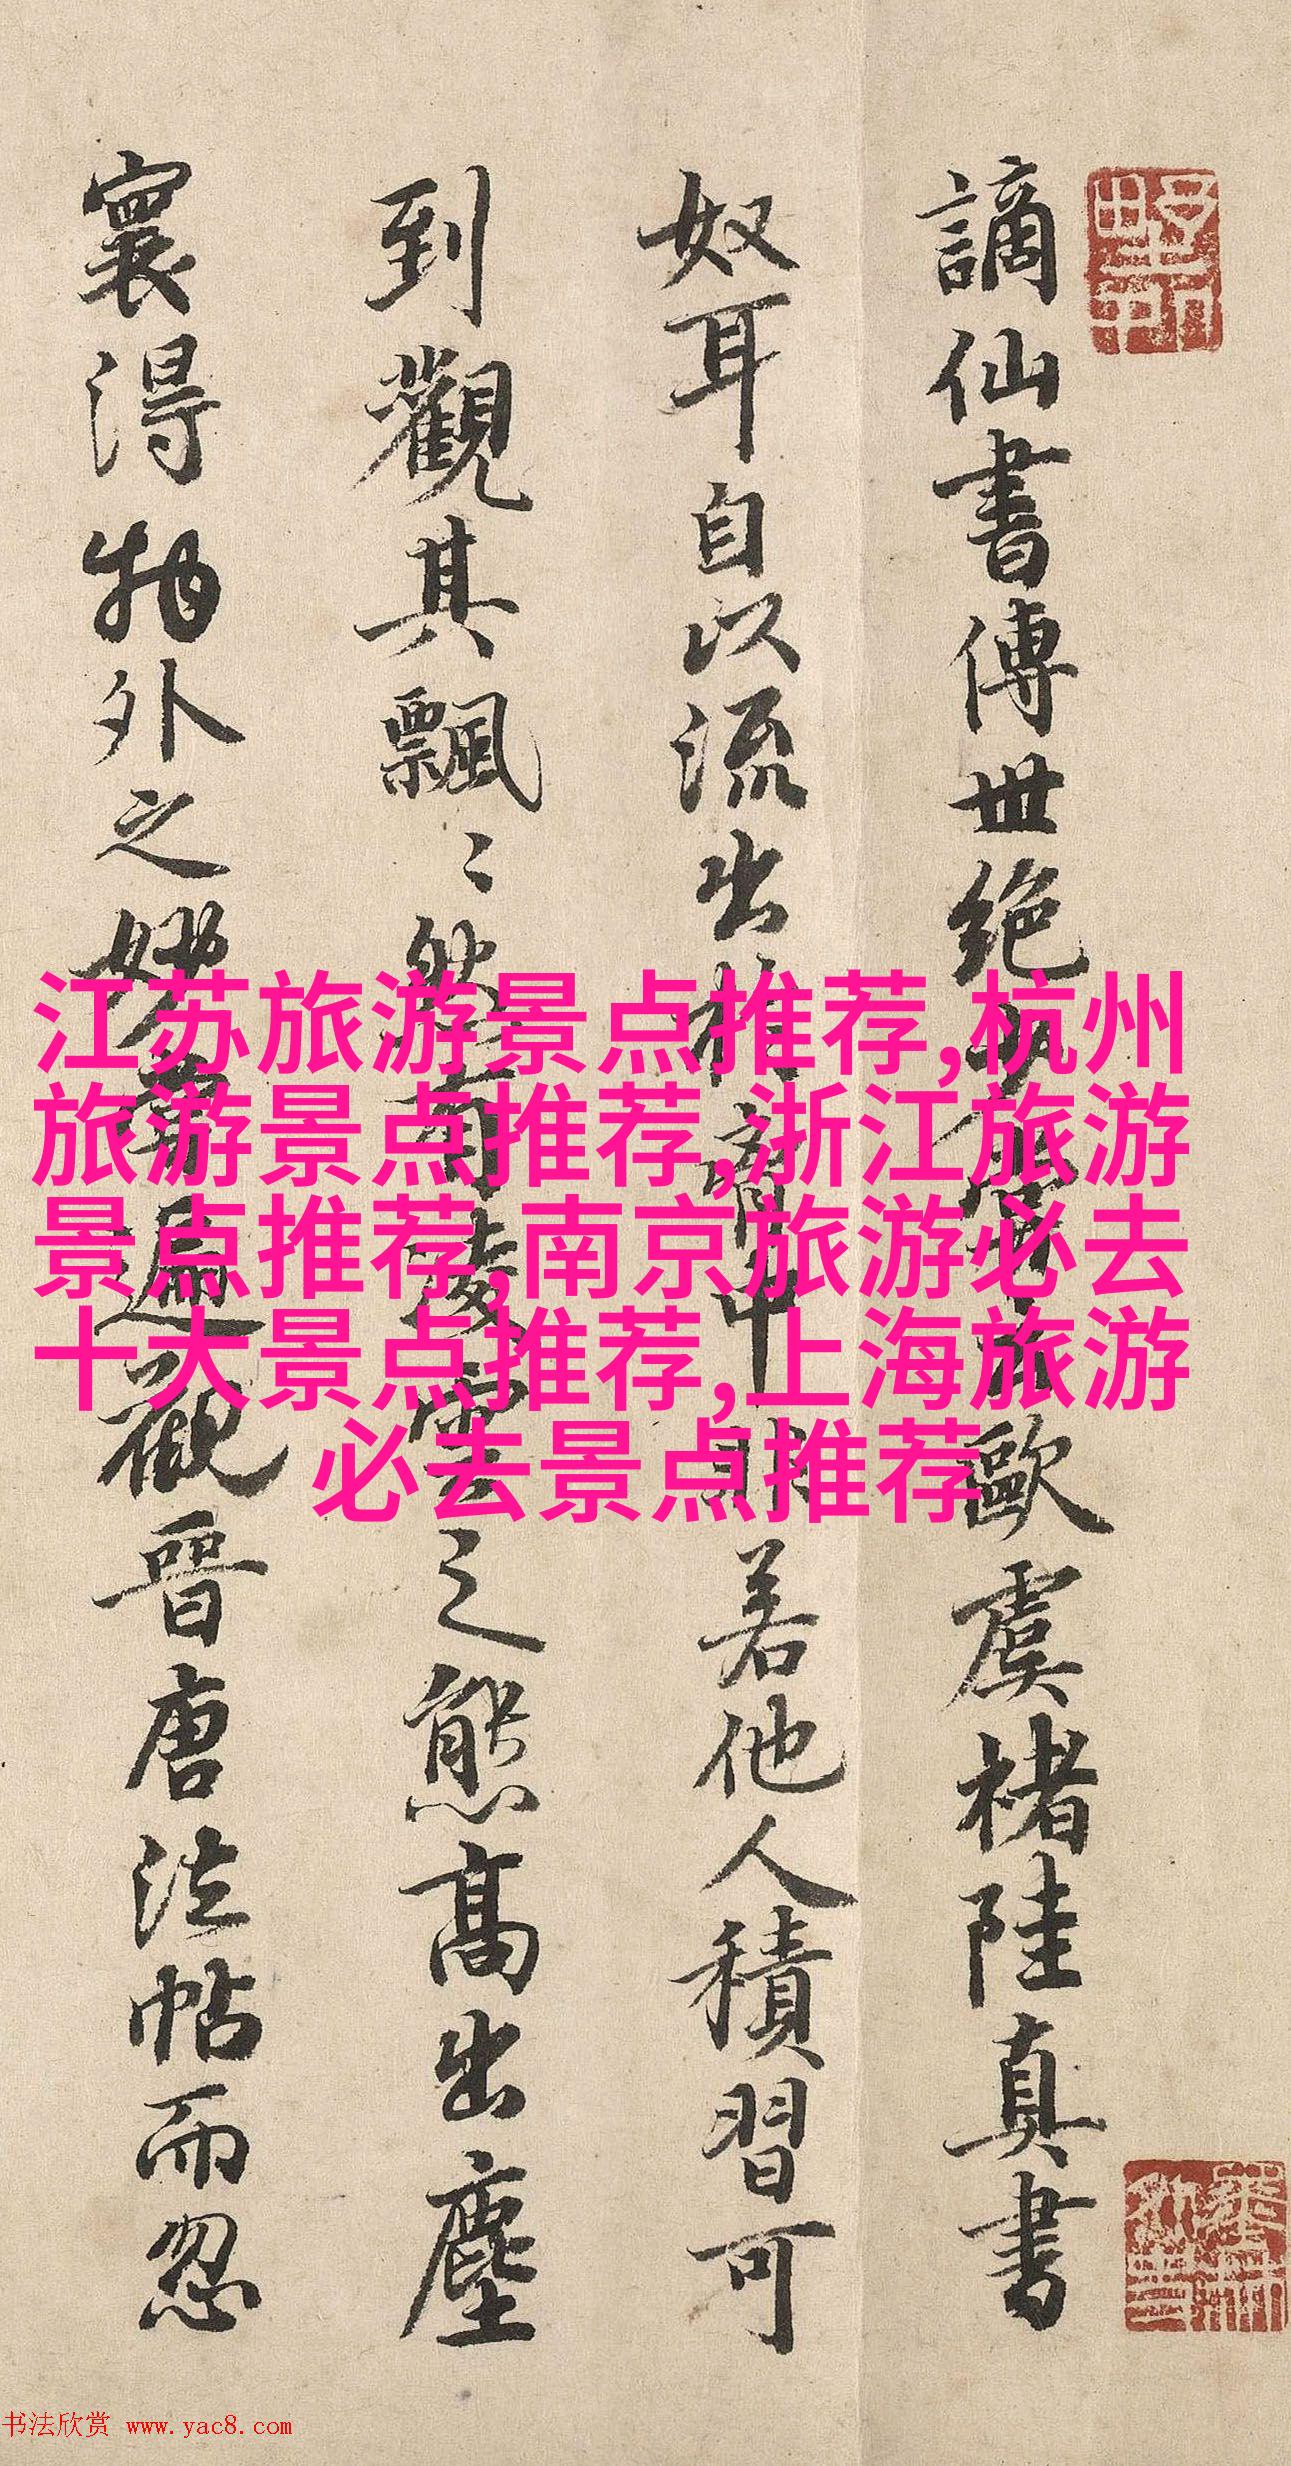 謫仙書傳世絕少嘗云歐虞褚陸真書
奴耳自以流出於胸中非若他人積習可
到觀其飄〻然有凌雲之態高出塵
寰得物外之妙嘗遍觀晉唐法帖而忽
江苏旅游景点推荐,杭州
旅游景点推荐,浙江旅游
景点推荐,南京旅游必去
十大景点推荐,上海旅游
必去景点推荐
书法欣赏 www.yac8.com